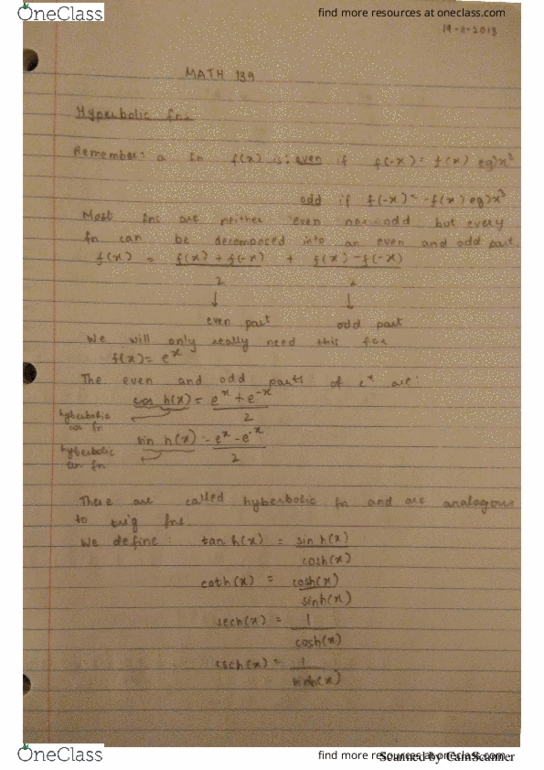 OneClass
find more resources at oneclass.com
MATH 139
Hyperbolic fns
Remember: a fn f(x) is: even if f(-x) = f(x) eg) x²
odd if f(-x) = -f(x) eg) x³
Most fns are neither even nor odd but every
fn can be decomposed into an even and odd part
f(x) = f(x) + f(-x) + f(x) - f(-x)
2 2
↓ ↓
even part odd part
We will only really need this for
f(x) = e^x
The even and odd parts of e^x are:
cos h(x) = e^x + e^-x
2
hyberbolic
cos fn
sin h(x) = e^x - e^-x
2
hyberbolic
sin fn
These are called hyberbolic fn and are analogous
to trig fns
We define: tan h(x) = sin h(x)
cosh(x)
coth(x) = cosh(x)
sinh(x)
sech(x) = 1
cosh(x)
csch(x) = 1
sinh(x)
OneClass
find more resources at oneclass.com
Scanned by CamScanner